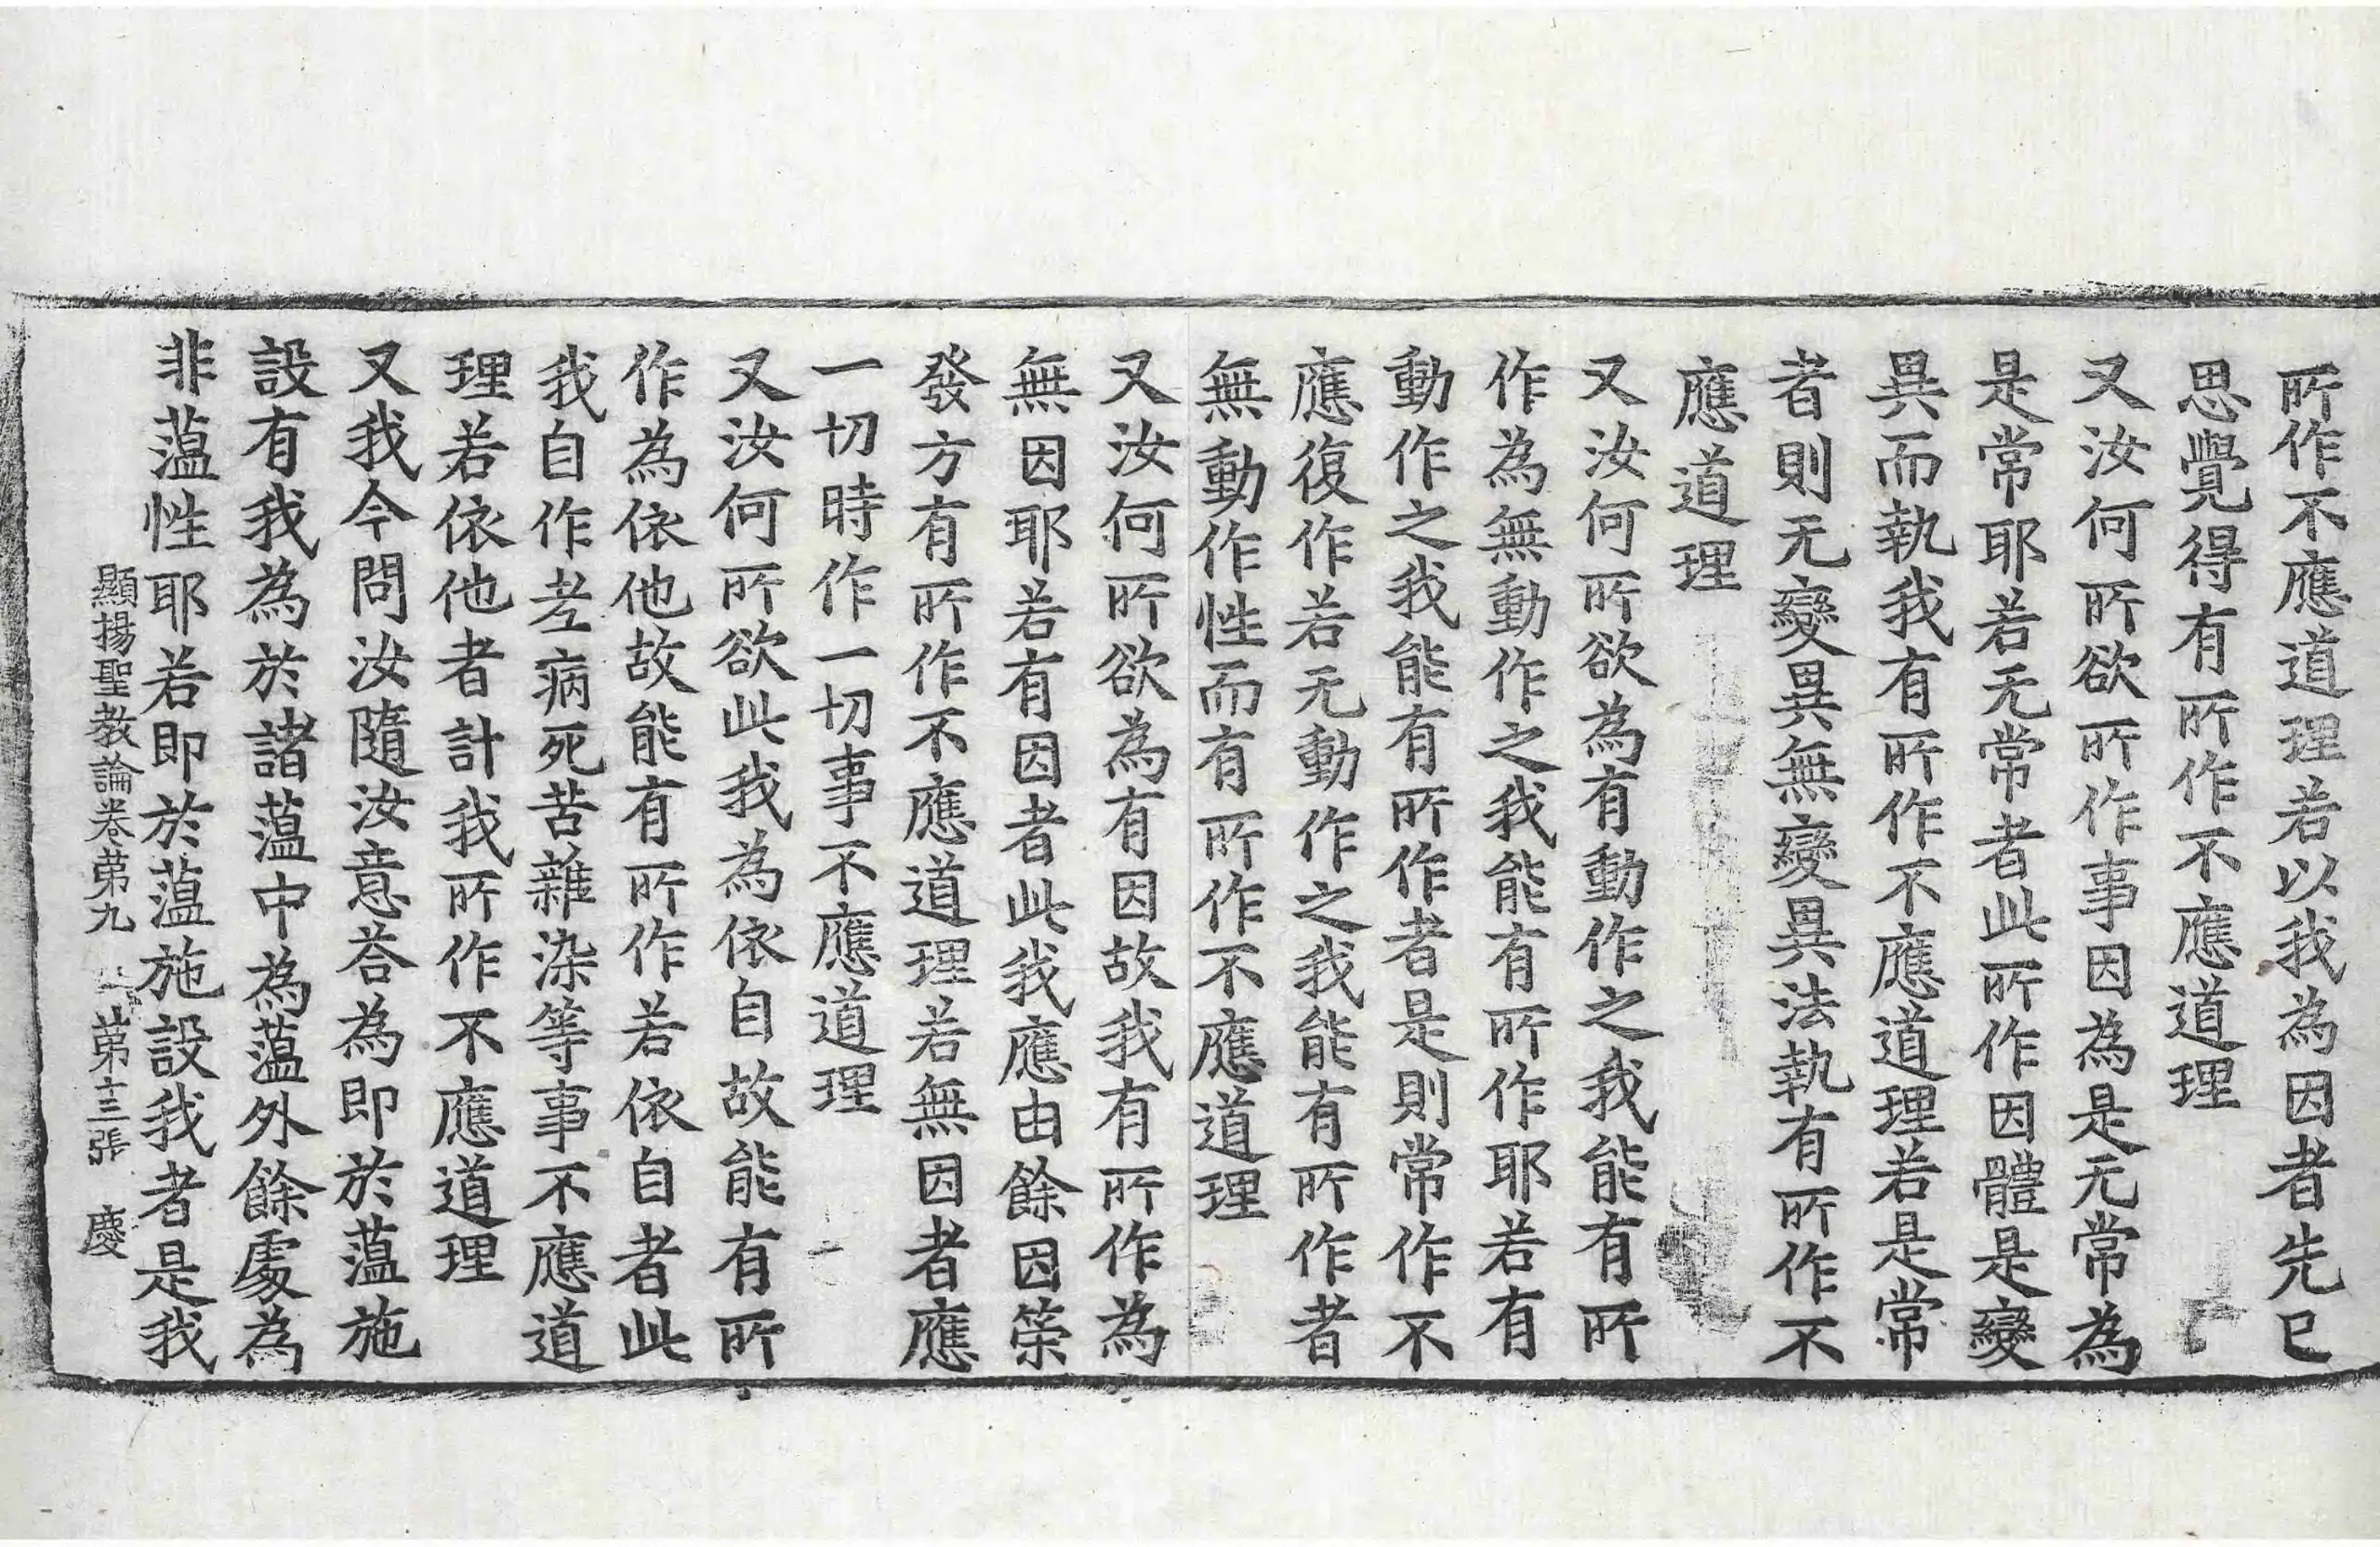 所作不應道理若以我為因者先已
思覺得有所作不應道理
又汝何所欲所作事因為是无常為
是常耶若无常者此所作因體是變
異而執我有所作不應道理若是常
者則无變異無變異法執有所作不
應道理
又汝何所欲為有動作之我能有所
作為無動作之我能有所作耶若有
動作之我能有所作者是則常作不
應復作若无動作之我能有所作者
無動作性而有所作不應道理
又汝何所欲為有因故我有所作為
無因耶若有因者此我應由餘因策
發方有所作不應道理若無因者應
一切時作一切事不應道理
又汝何所欲此我為依自故能有所
作為依他故能有所作若依自者此
我自作老病死苦雜染等事不應道
理若依他者計我所作不應道理
又我今問汝隨汝意荅為即於蘊施
設有我為於諸蘊中為蘊外餘處為
非蘊性耶若即於蘊施設我者是我
顯揚聖教論卷第九 第十三張 慶